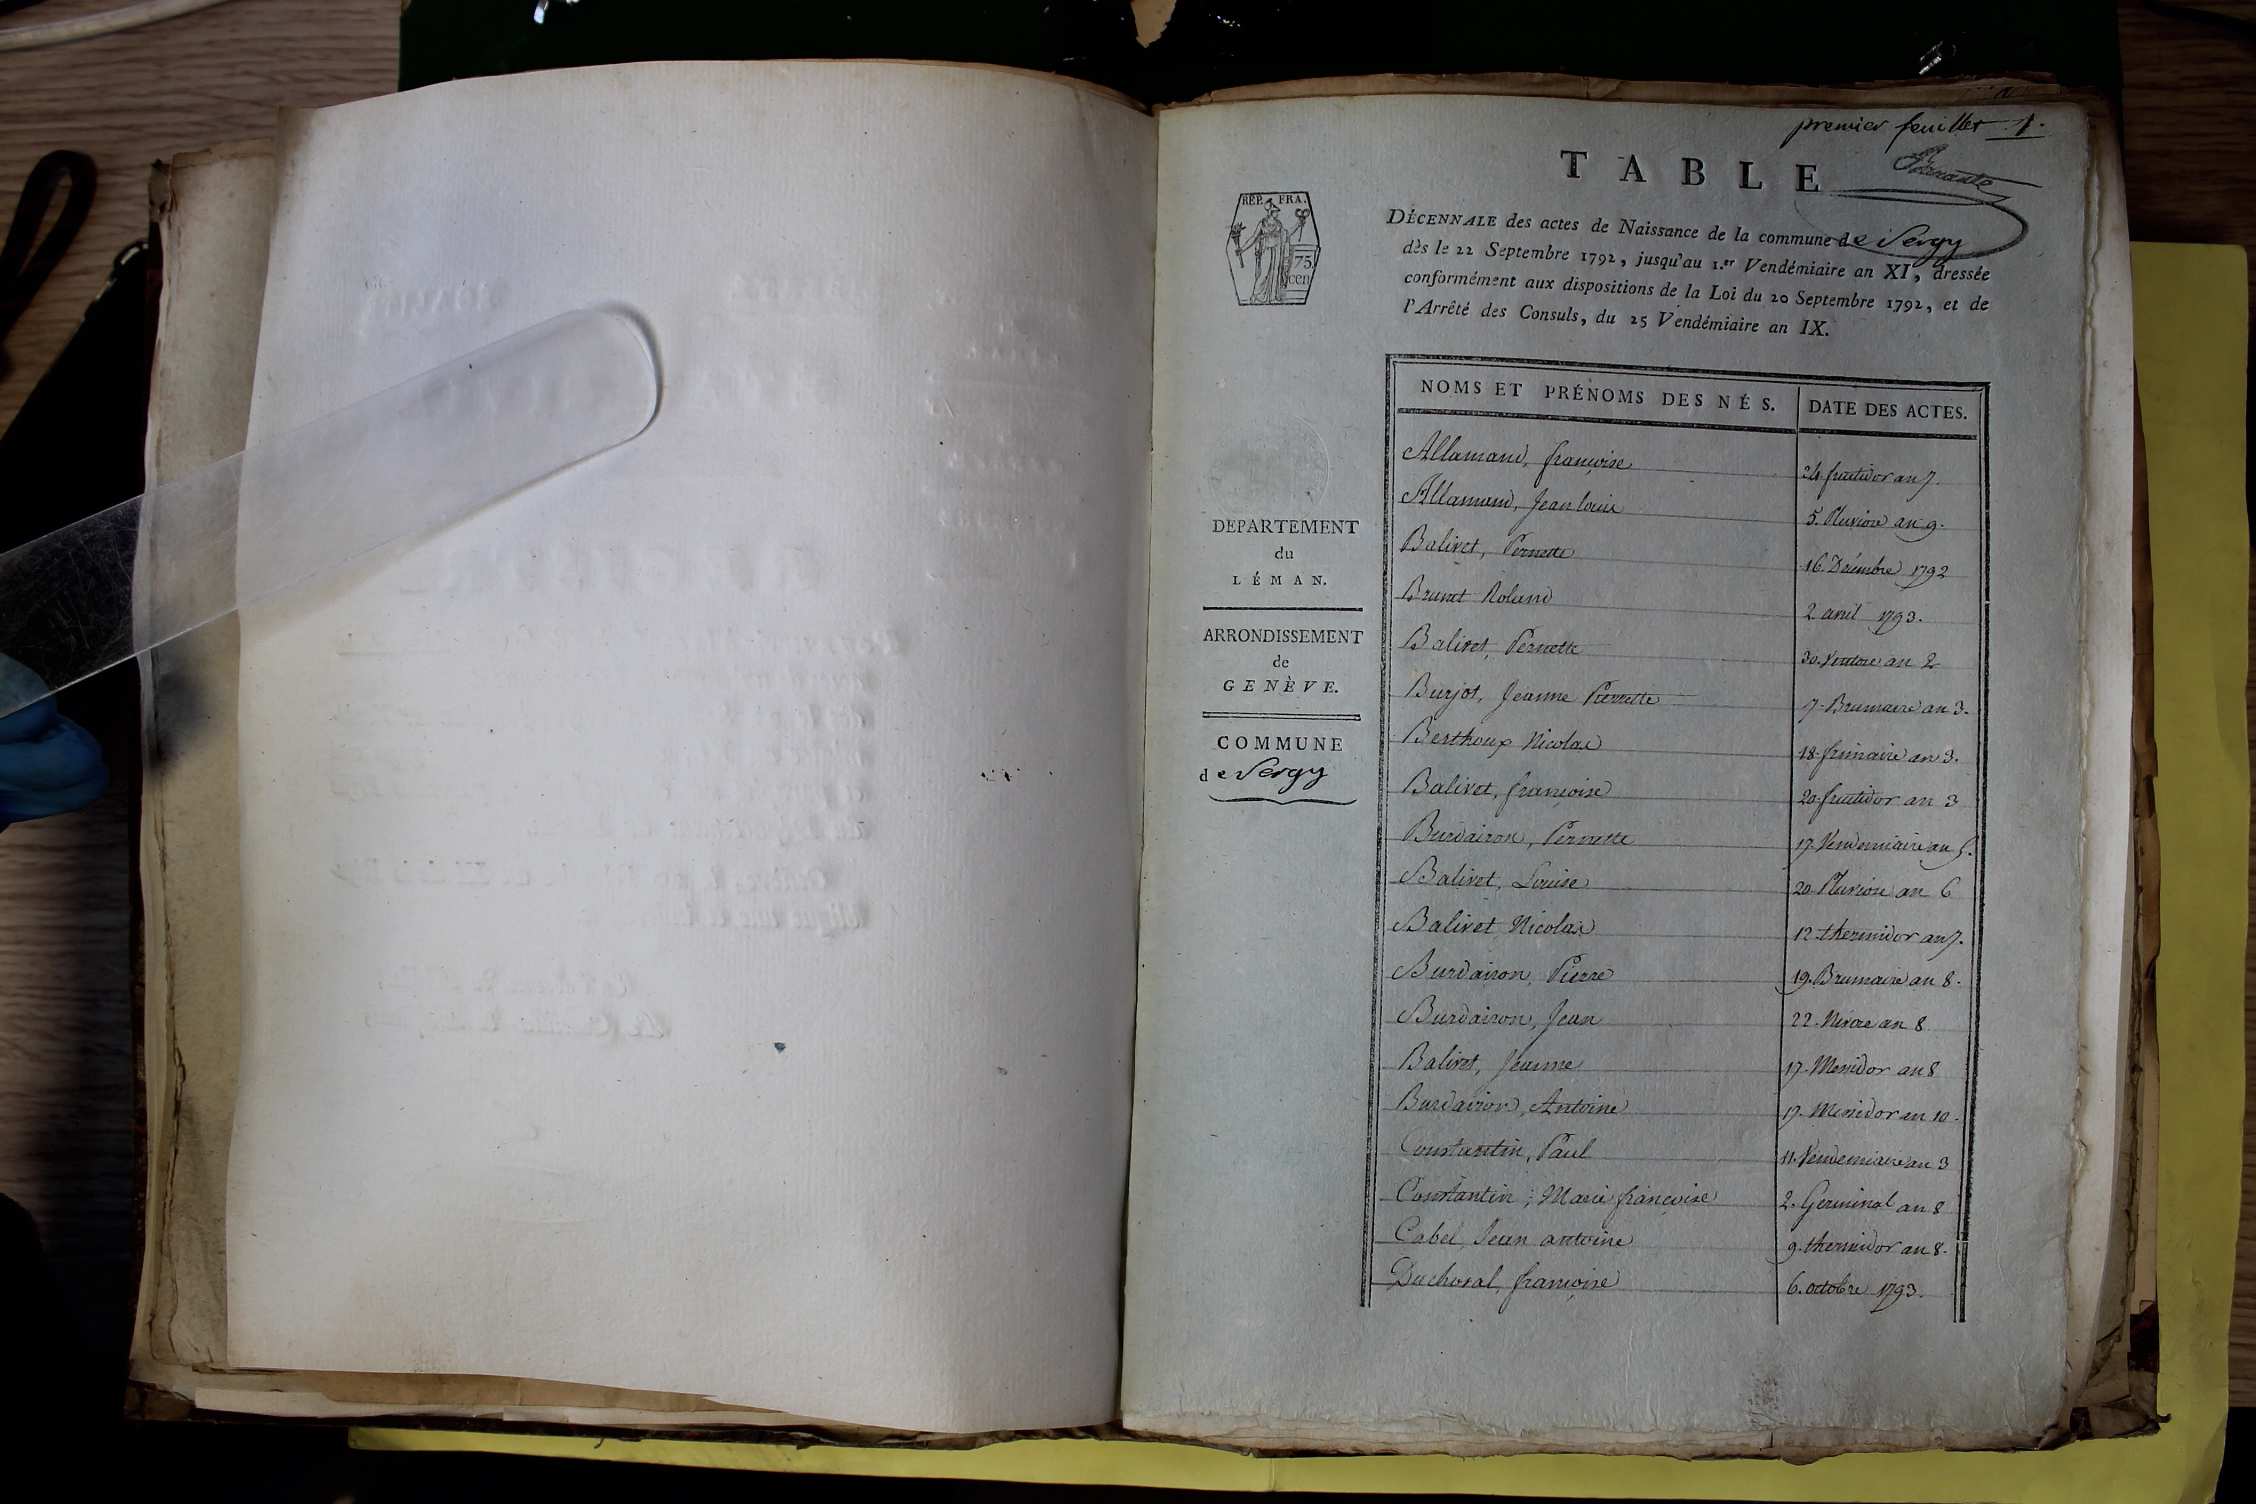 premier feuillet 1.
TABLE
REP. FRA.
75
cen
DÉCENNALE des actes de Naissance de la commune de Vergy
dès le 22 Septembre 1792, jusqu'au 1.er Vendémiaire an XI, dressée
conformément aux dispositions de la Loi du 20 Septembre 1792, et de
l'Arrêté des Consuls, du 25 Vendémiaire an IX.
DEPARTEMENT
du
LÉMAN.
ARRONDISSEMENT
de
GENÈVE.
COMMUNE
de Vergy
NOMS ET PRÉNOMS DES NÉS. DATE DES ACTES.
Allamand, françoise 24 fructidor an 7.
Allamand, Jean louis 5. Pluviose an 9.
Balivet, Pernette 16. Décembre 1792
Brunet Roland 2 avril 1793.
Balivet, Pernette 30. Ventose an 2
Burjot, Jeanne Pernette 7. Brumaire an 3.
Berthoux Nicolas 18. frimaire an 3.
Balivet, françoise 20. fructidor an 3
Burdairon, Pernette 17. Vendemiaire an 5.
Balivet, Louise 20 Pluviose an 6
Balivet Nicolas 12. thermidor an 7.
Burdairon, Pierre 19. Brumaire an 8.
Burdairon, Jean 22. Nivose an 8
Balivet, Jeanne 17. Messidor an 8
Burdairon, Antoine 17. Messidor an 10.
Constantin, Paul 11. Vendemiaire an 3
Constantin, Marie françoise 2. Germinal an 8
Cabel, Jean antoine 9. thermidor an 8.
Duchosal, françoise 6. octobre 1793.